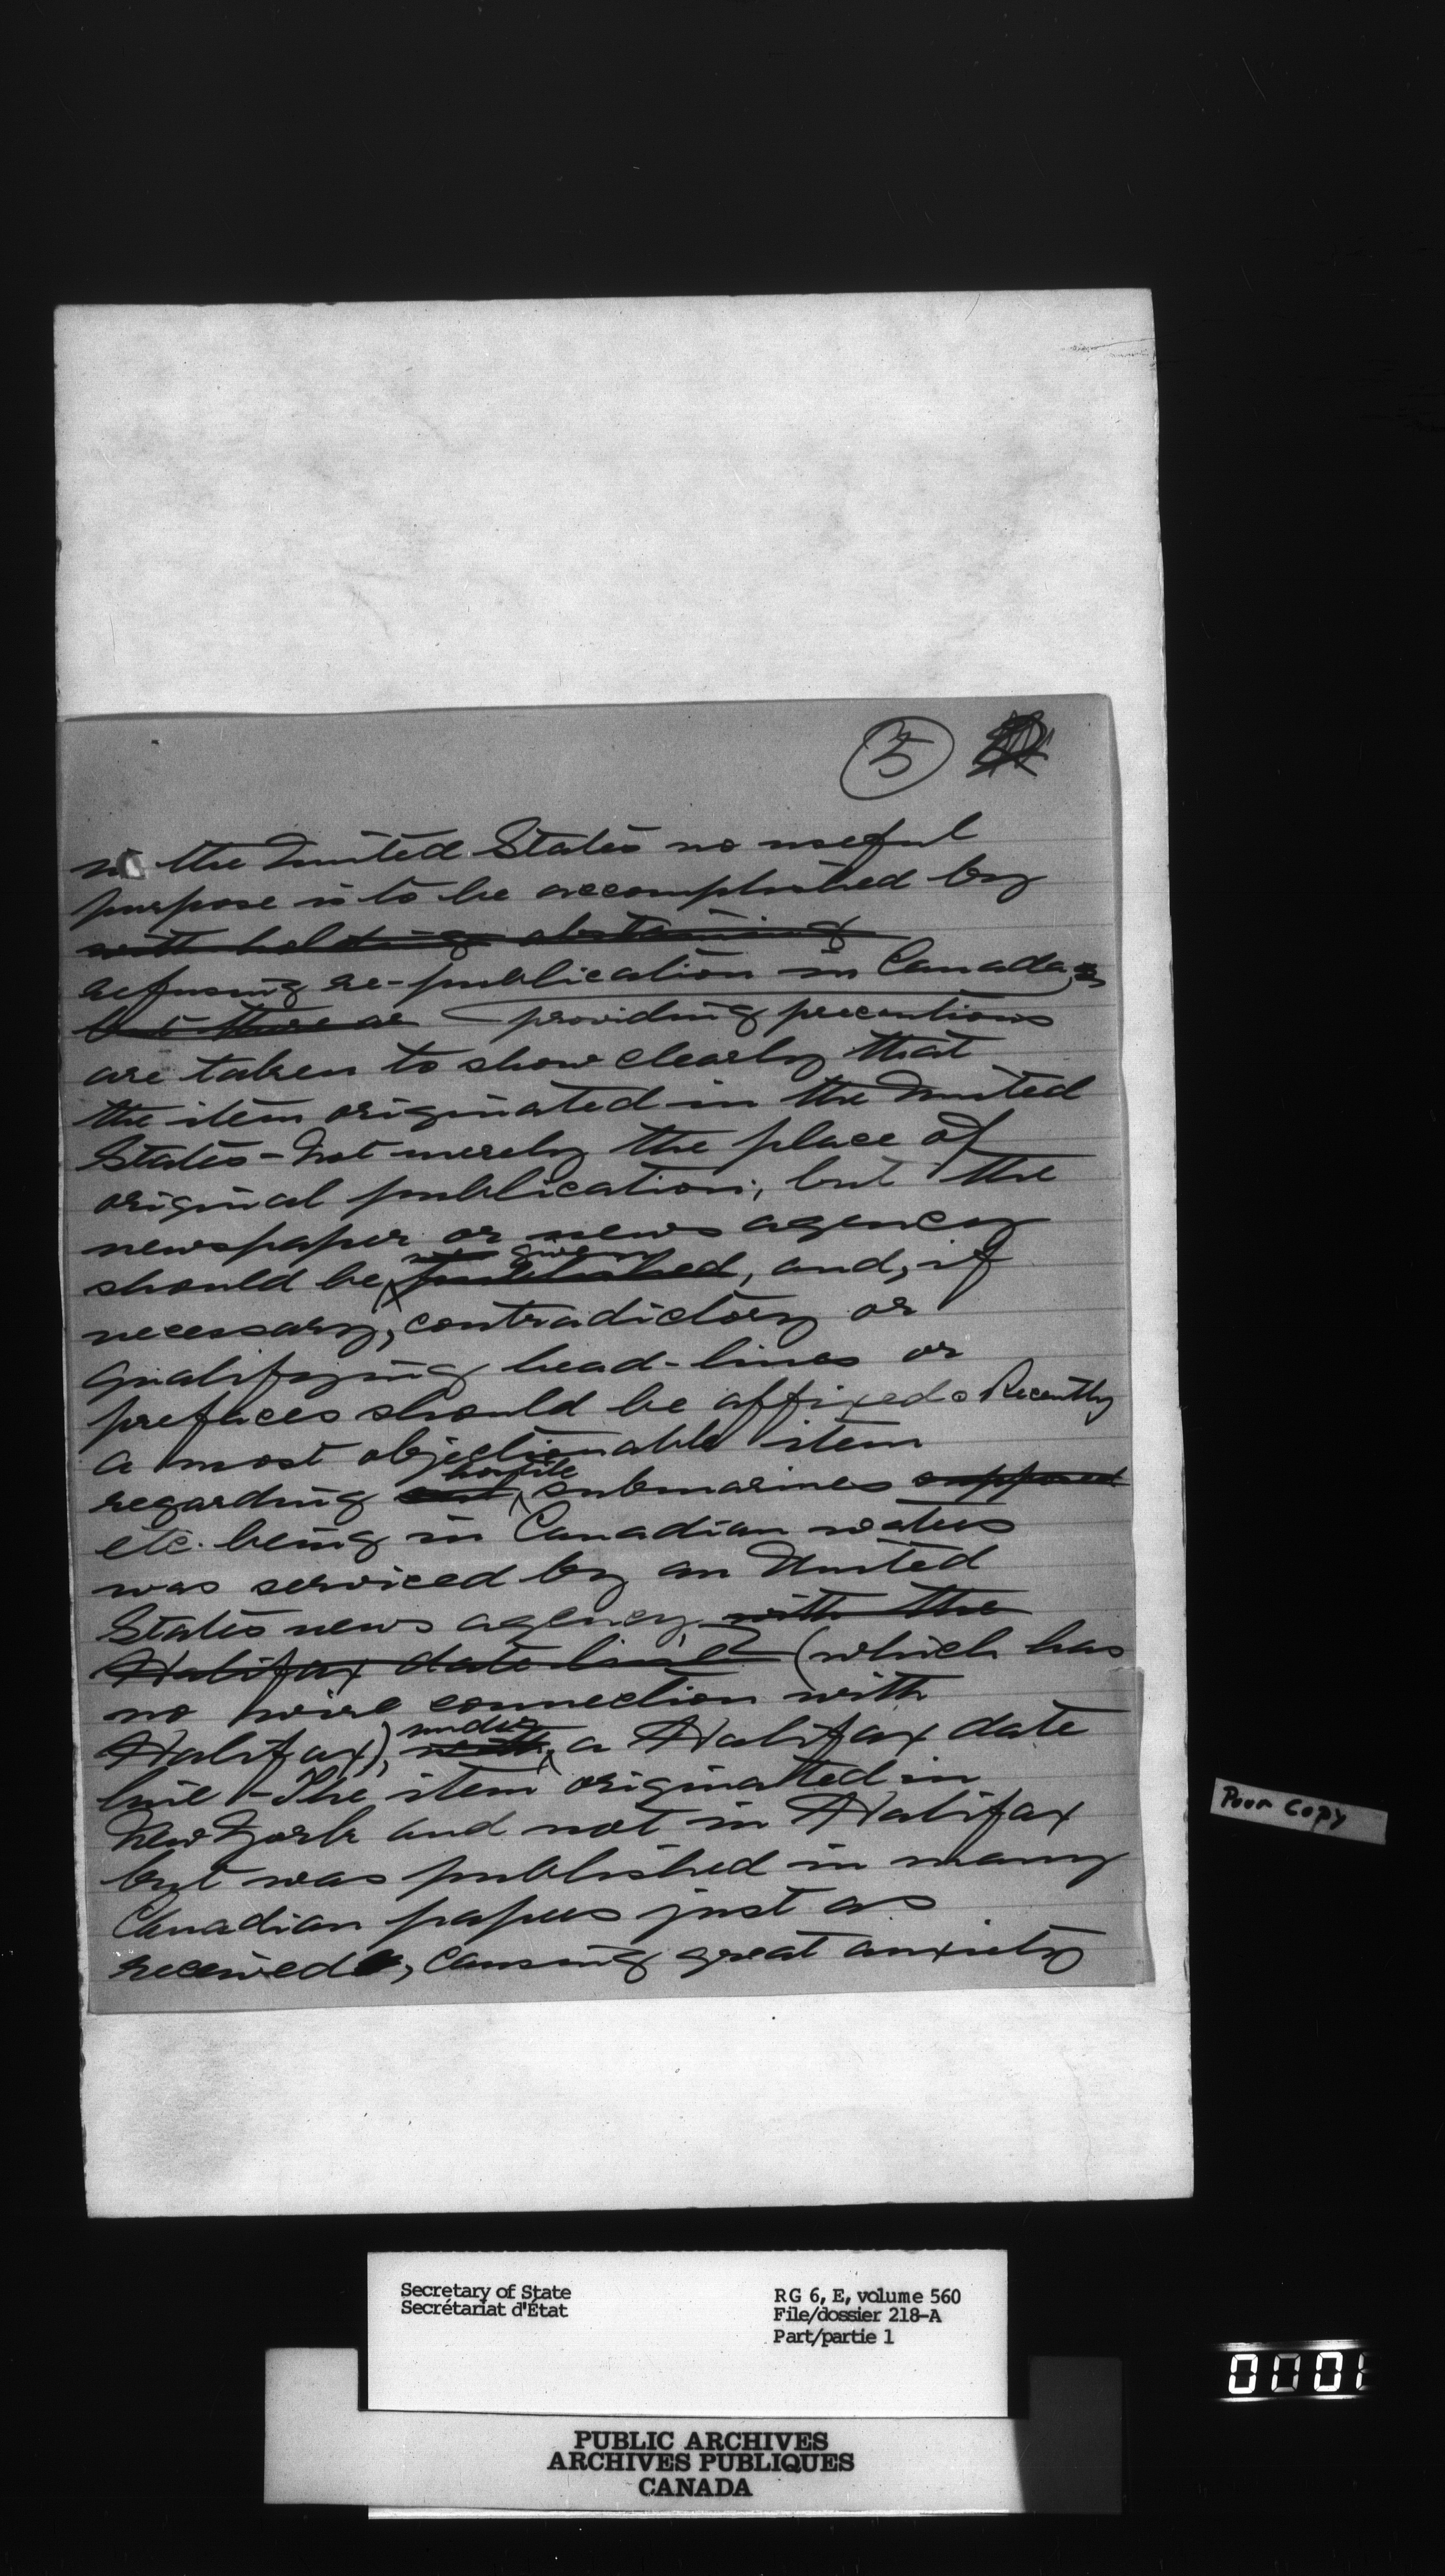 5
in the United States no useful
purpose is to be accomplished by
with holding abstaining
refusing re-publication in Canada,
but there are providing precautions
are taken to show clearly that
the item originated in the United
States - not merely the place of
original publication, but the
newspaper or news agency
given
should be published, and, if
necessary, contradictory or
qualifying head-lines or
prefaces should be affixed. Recently
a most objectionable item
hostile
regarding submarines supposed
etc. being in Canadian waters
was serviced by an United
States news agency with the
Halifax date line (which has
no wire connection with
under
Halifax), with a Halifax date
line - The item originated in
New York and not in Halifax
but was published in many
Canadian papers just as
received, causing great anxiety
Poor Copy
Secretary of State
Secrétariat d'État
RG 6, E, volume 560
File/dossier 218-A
Part/partie 1
PUBLIC ARCHIVES
ARCHIVES PUBLIQUES
CANADA
0001